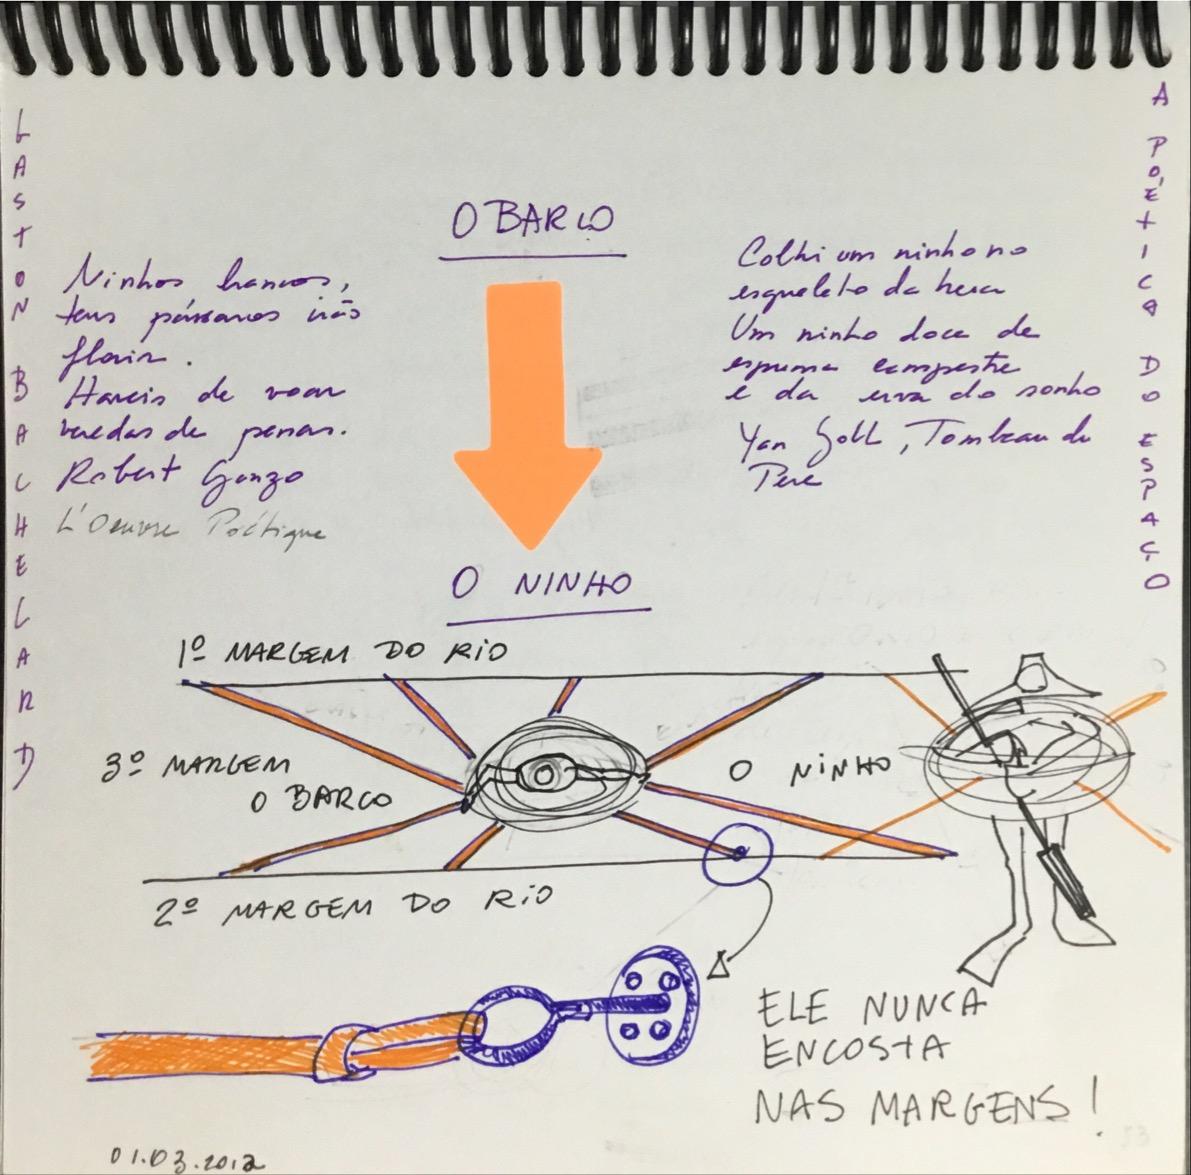 GASTON BACHELARD
A POÉTICA DO ESPAÇO
O BARCO
Ninhos brancos,
teus pássaros irão
florir.
Haveis de voar
veredas de penas.
Robert Ganzo
L'Oeuvre Poétique
Colhi um ninho no
esqueleto da hera
Um ninho doce de
espuma campestre
e da erva do sonho
Yan Goll, Tombeau du
Pere
O NINHO
1º MARGEM DO RIO
3º MARGEM
O BARCO
O NINHO
2º MARGEM DO RIO
ELE NUNCA
ENCOSTA
NAS MARGENS!
01.03.2012
53